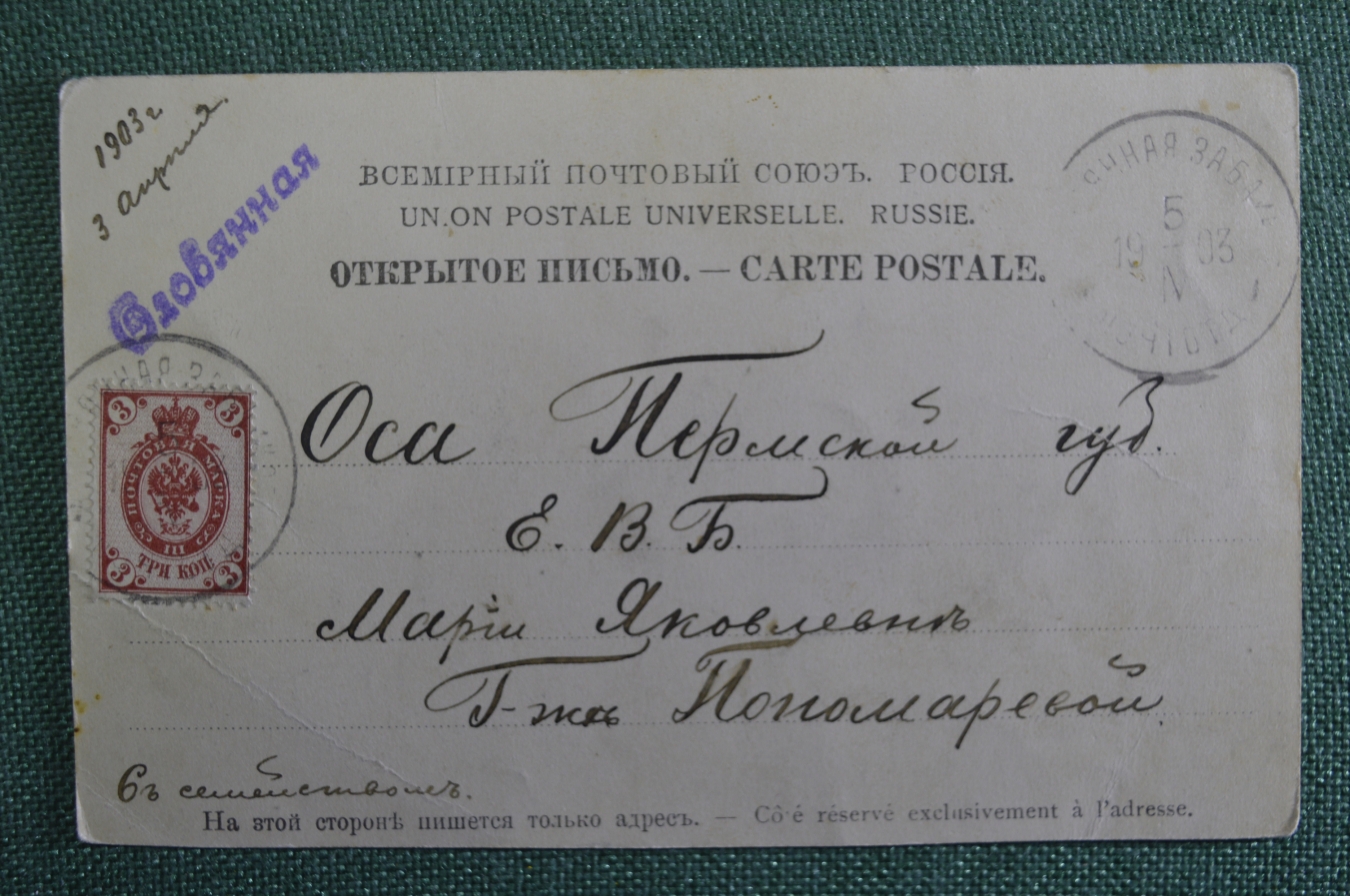 1903 г.
3 апреля.
Оловянная
ВСЕМІРНЫЙ ПОЧТОВЫЙ СОЮЗЪ. РОССІЯ.
UN.ON POSTALE UNIVERSELLE. RUSSIE.
ОТКРЫТОЕ ПИСЬМО. — CARTE POSTALE.
5
19 03
IV
3 3
ПОЧТОВАЯ МАРКА
III
ТРИ КОП.
3 3
Оса Пермской губ.
Е. В. Б.
Маріи Яковлевнѣ
Г-жѣ Пономаревой.
Съ семействомъ.
На этой сторонѣ пишется только адресъ. — Cô é réservé exclusivement à l'adresse.